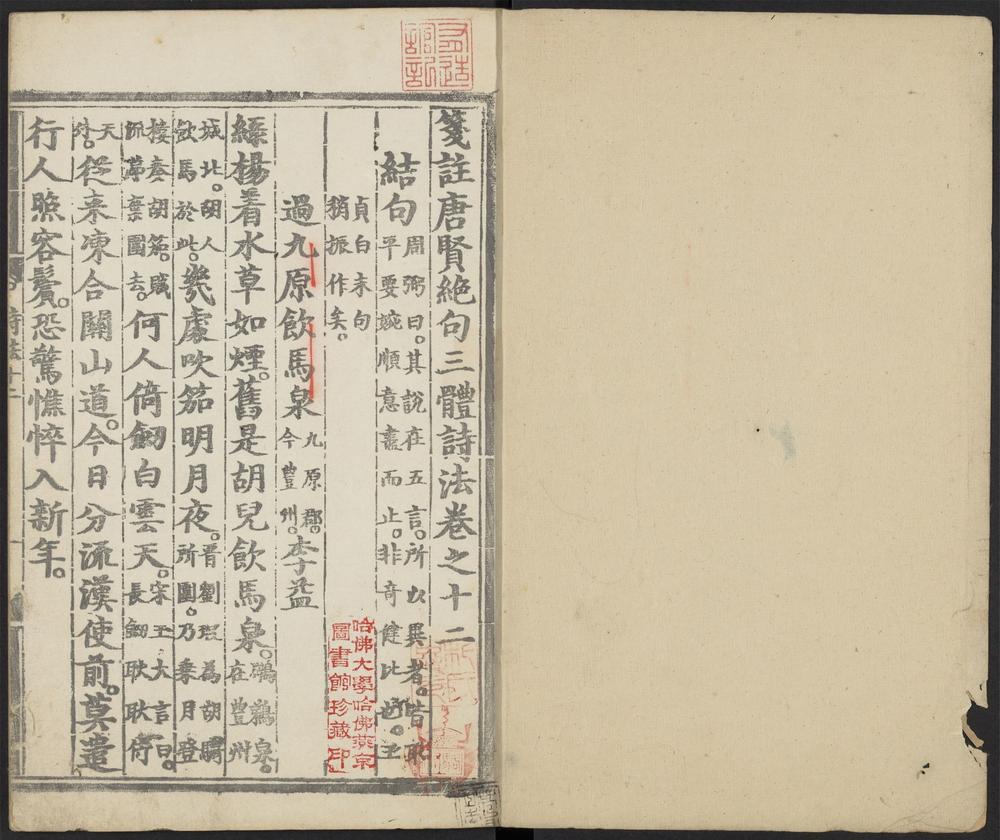 箋註唐賢絶句三體詩法卷之十二
結句
周弼曰其說在五言所以異者皆取
平妥婉順意盡而止非奇健比也王
貞白末句
稍振作矣
過九原飲馬泉
九原郡
今豐州
李益
緑楊着水草如煙舊是胡兒飲馬泉
鸊鵜泉
在豐州
城北胡人
飲馬於此
幾處吹笳明月夜
晋劉琨為胡騎
所圍乃乗月登
樓奏胡笳賊
流涕棄圍去
何人倚劒白雲天
宋玉大言曰
長劒耿耿倚
天
外
從来凍合關山道今日分流漢使前莫遣
行人照容鬢恐驚憔悴入新年
哈佛大學哈佛燕京
圖書館珍藏印